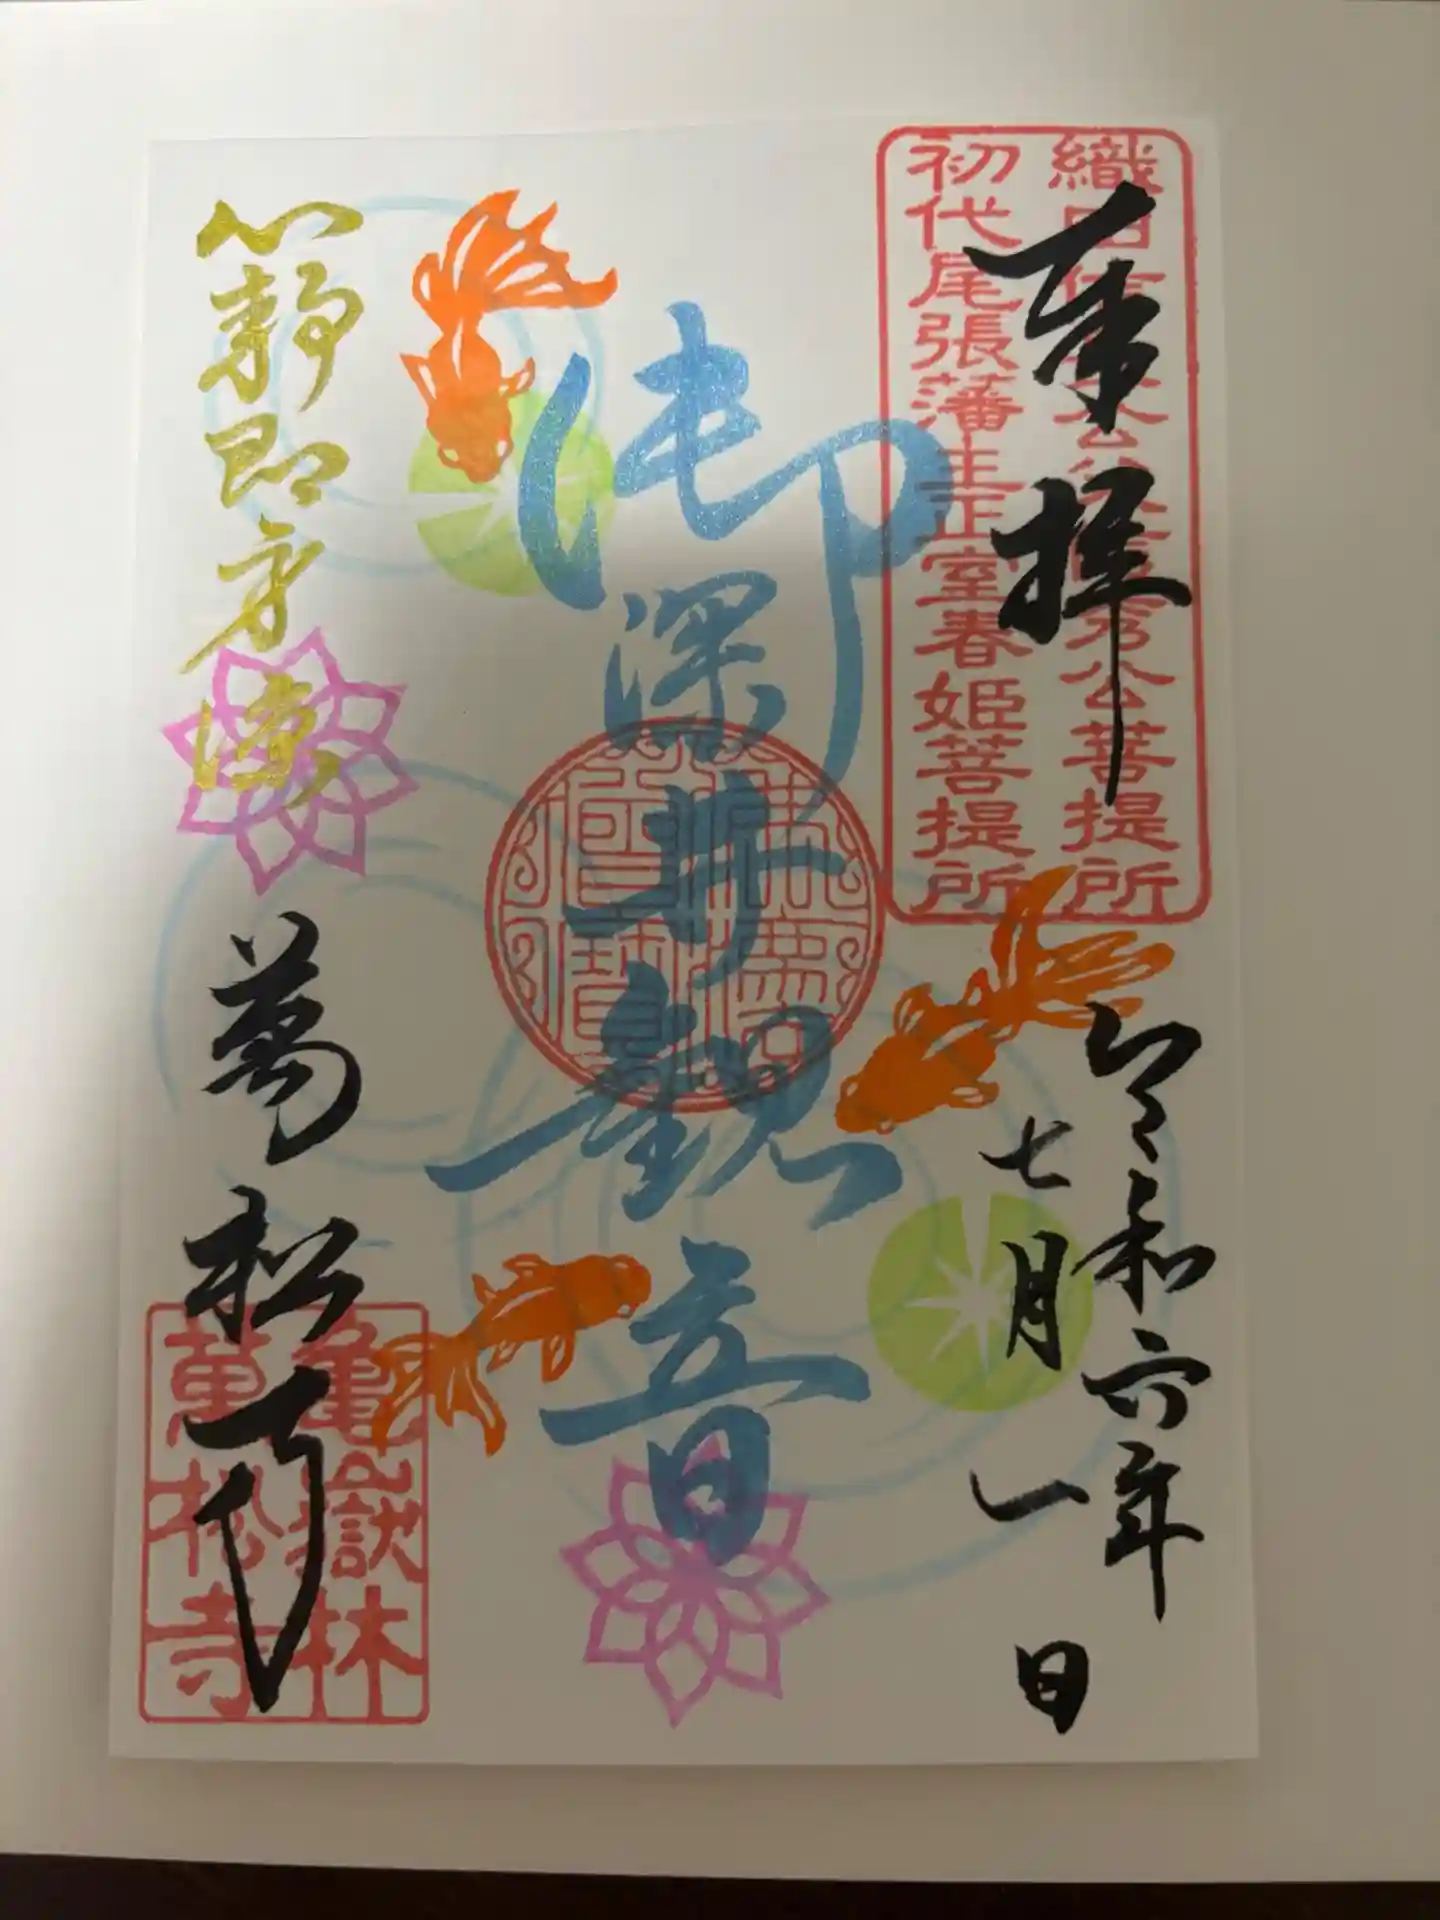 奉拝
織田信
公菩提所
初代尾張藩主正室春姫菩提所
令和六年
七月一日
御深井観音
心静即身凉
萬松寺
亀嶽林
萬松寺